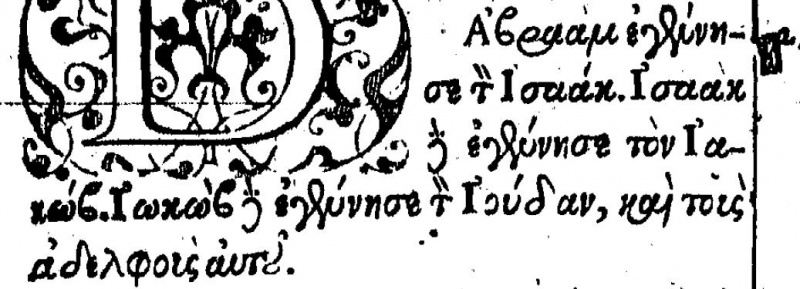 Ἀβραὰμ ἐγέννη-
σε τὸν Ἰσαάκ. Ἰσαὰκ
δὲ ἐγέννησε τὸν Ἰα-
κώβ. Ἰακὼβ δὲ ἐγέννησε τὸν Ἰούδαν, καὶ τοὺς
ἀδελφοὺς αὐτοῦ.